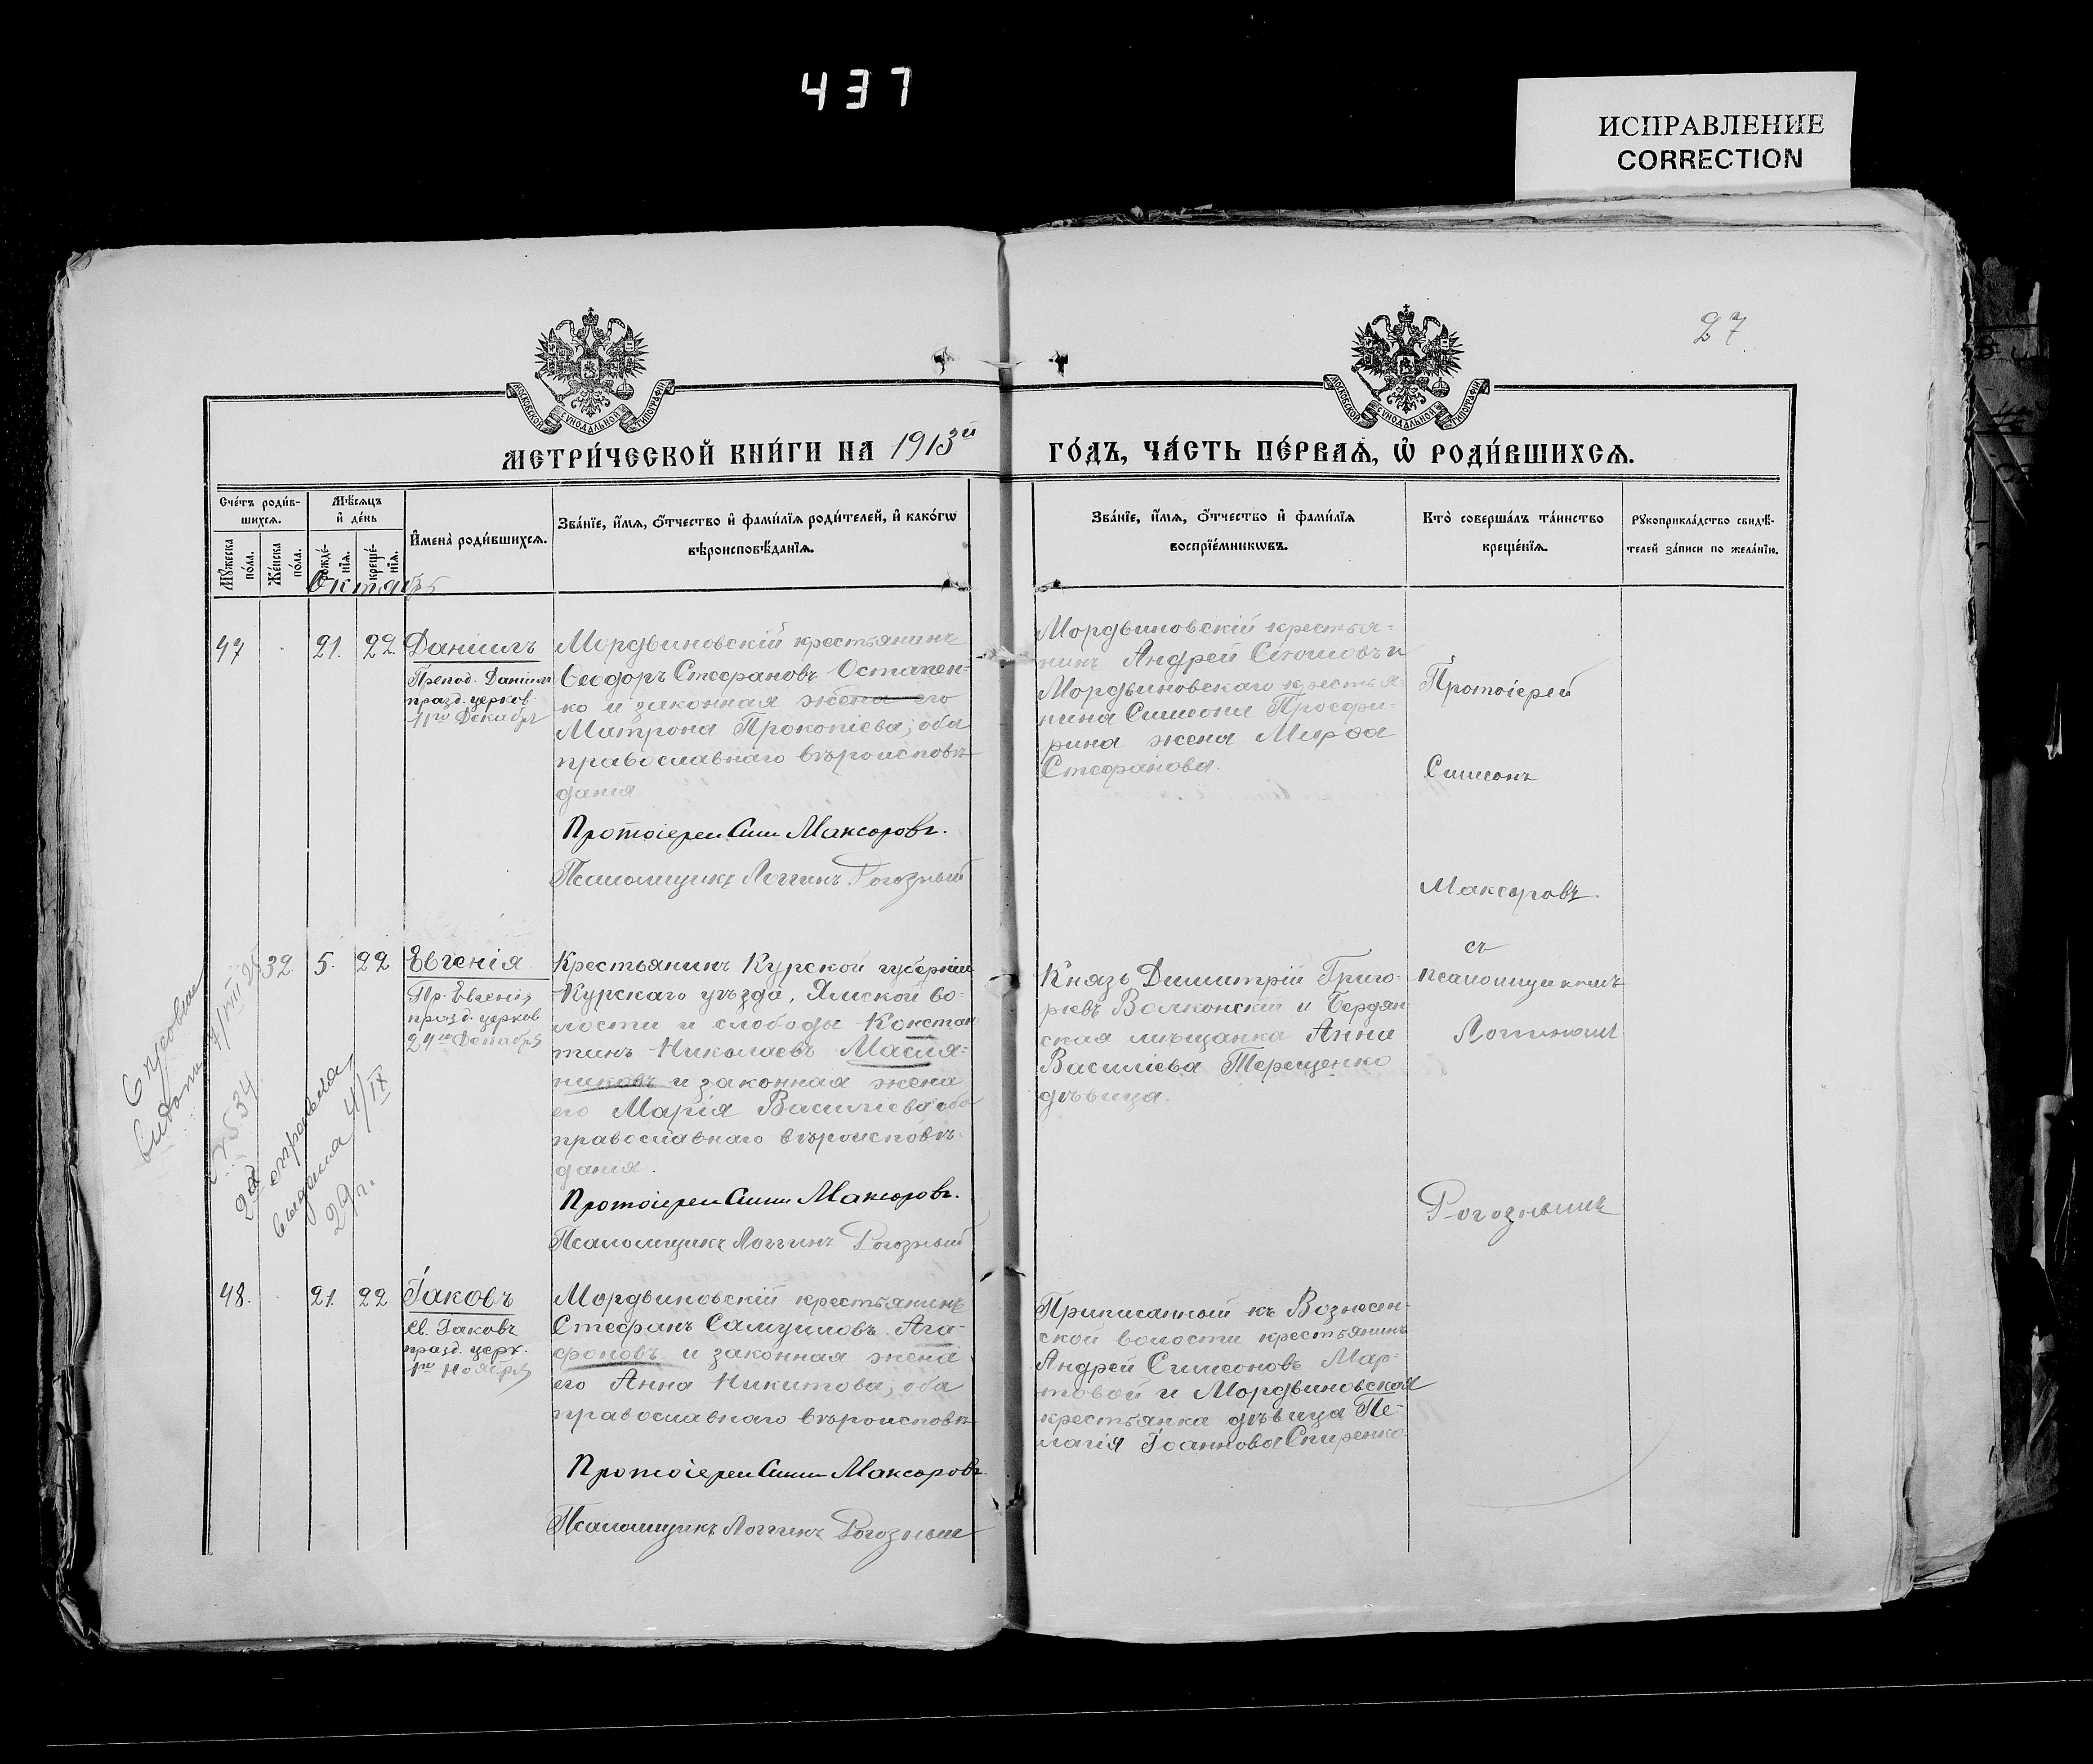 437
ИСПРАВЛЕНИЕ
CORRECTION
27
МОСКОВСКОЙ СУНОДАЛЬНОЙ ТИПОГРАФІИ
МОСКОВСКОЙ СУНОДАЛЬНОЙ ТИПОГРАФІИ
МЕТРИ́ЧЕСКОЙ КНИ́ГИ НА 1913й
ГО́ДЪ, ЧА́СТЬ ПЕ́РВАѦ, Ѡ҆ РОДИ́ВШИХСѦ.
Сче́тъ роди́в-
шихсѧ.
Мꙋ́жеска по́ла.
Же́нска по́ла.
Мѣ́сѧцъ
и҆ де́нь
рожде́-
нїѧ.
креще́-
нїѧ.
И҆мена̀ роди́вшихсѧ.
Зва́нїе, и҆́мѧ, ѻ҆́тчество и҆ фами́лїѧ роди́телей, и҆ како́гѡ
вѣроисповѣ́данїѧ.
Зва́нїе, и҆́мѧ, ѻ҆́тчество и҆ фами́лїѧ
воспрїе́мникѡвъ.
Кто̀ соверша́лъ та́инство
креще́нїѧ.
Рꙋкоприкла́дство свидѣ́-
телей за́писи по жела́нїю.
Октябрь
47 21. 22. Даніилъ
Препод. Даніил
празд. церков.
11го Декабря
Мордвиновскій крестьянинъ
Ѳеодоръ Стефановъ Остапен-
ко и законная жена его
Матрона Прокопіева; оба
православнаго вѣроисповѣ-
данія
Протоіерей Сим Максоровъ.
Псаломщикъ Логгинъ Рогозный
Мордвиновскій крестья-
нинъ Андрей и
Мордвиновскаго крестья-
нина Симеона
жена Марѳа
Стефанова.
Протоіерей
Симеонъ
Максоровъ
съ
псаломщикомъ
Логгиномъ
Рогознымъ
32 5. 22 Евгенія
Пр. Евгенія
празд. церков
24го Декабря
Крестьянинъ Курской губерніи
Курскаго уѣзда, Ямской во-
лости и слободы Констан
тинъ Николаевъ Масля-
никовъ и законная жена
его Марія Василіева оба
православнаго вѣроисповѣ-
данія.
Протоіерей Сим Максоровъ.
Псаломщикъ Логгинъ Рогозный
Князь Димитрій Григо-
рьевъ Волконскій и Бердян
ская мѣщанка Анна
Василіева Терещенко
дѣвица.
выдана
№ 534
2я
выдана 4/IX
29 г.
48. 21. 22 Іаковъ
Св. Іаковъ
празд. церк.
1го Ноября
Мордвиновскій крестьянинъ
Стефанъ Самуиловъ Ага-
фоновъ и законная жена
его Анна Никитова; оба
православнаго вѣроисповѣ
Протоіерей Сим Максоровъ.
Псаломщикъ Логгинъ Рогозный
Приписанный къ Вознесен-
ской волости крестьянинъ
Андрей Симеоновъ Мар-
товой и Мордвиновская
крестьянка дѣвица Пе-
лагія Іоаннова Спиренко